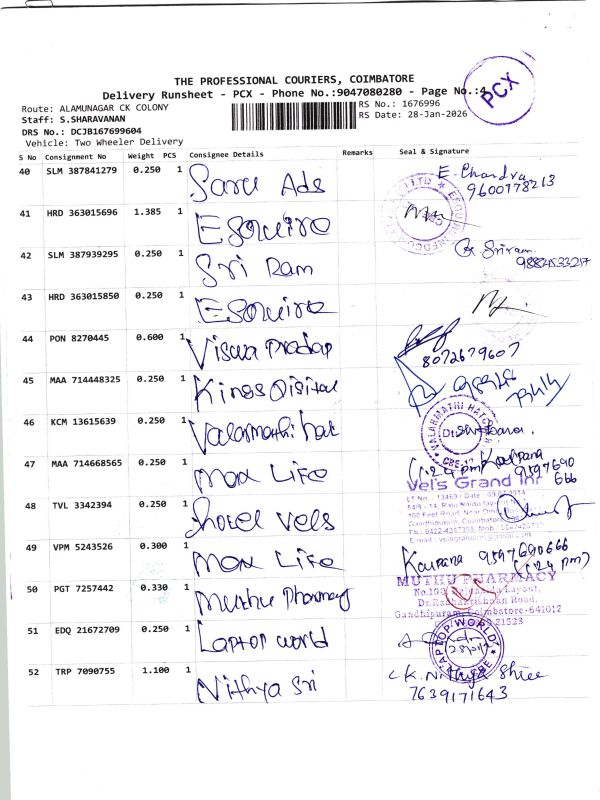 THE PROFESSIONAL COURIERS, COIMBATORE
Delivery Runsheet - PCX - Phone No.:9047080280 - Page No.:4
PCX
Route: ALAMUNAGAR CK COLONY
RS No.: 1676996
Staff: S.SHARAVANAN
RS Date: 28-Jan-2026
DRS No.: DCJB167699604
Vehicle: Two Wheeler Delivery
S No Consignment No Weight PCS Consignee Details Remarks Seal & Signature
40 SLM 387841279 0.250 1 Saru Ads E. Chandra
9600778213
41 HRD 363015696 1.385 1 Esquire
42 SLM 387939295 0.250 1 Sri Ram Sriram
43 HRD 363015850 0.250 1 Esquire
44 PON 8270445 0.600 1 Viswa Pradap
8072679607
45 MAA 714448325 0.250 1 Kings Digital
46 KCM 13615639 0.250 1 Valarmathi hat
VALARMATHI HATCH
47 MAA 714668565 0.250 1 Max Life
(1:24 pm) Kalpana
9597690
666
48 TVL 3342394 0.250 1 hotel vels
Vel's Grand Inn
49 VPM 5243526 0.300 1 Max Life
Kalpana 9597690666
(1:24 pm)
50 PGT 7257442 0.330 1 Muthu Pharmacy
MUTHU PHARMACY
Layout,
Dr.Radhakrishnan Road,
Gandhipuram, Coimbatore-641012
51 EDQ 21672709 0.250 1 Laptop world
LAPTOP WORLD
52 TRP 7090755 1.100 1 Nithya Sri
K. Nithya Shree
7639171643